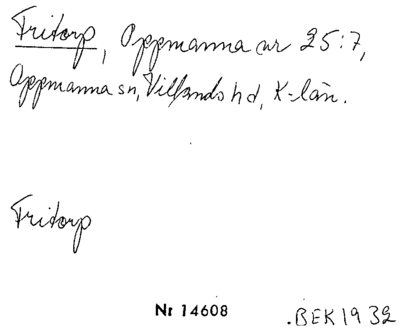 Fritorp, Oppmanna nr 25:7,
Oppmanna sn, Villands hd, K-län.
Fritorp
Nr 14608 .BEK 1932